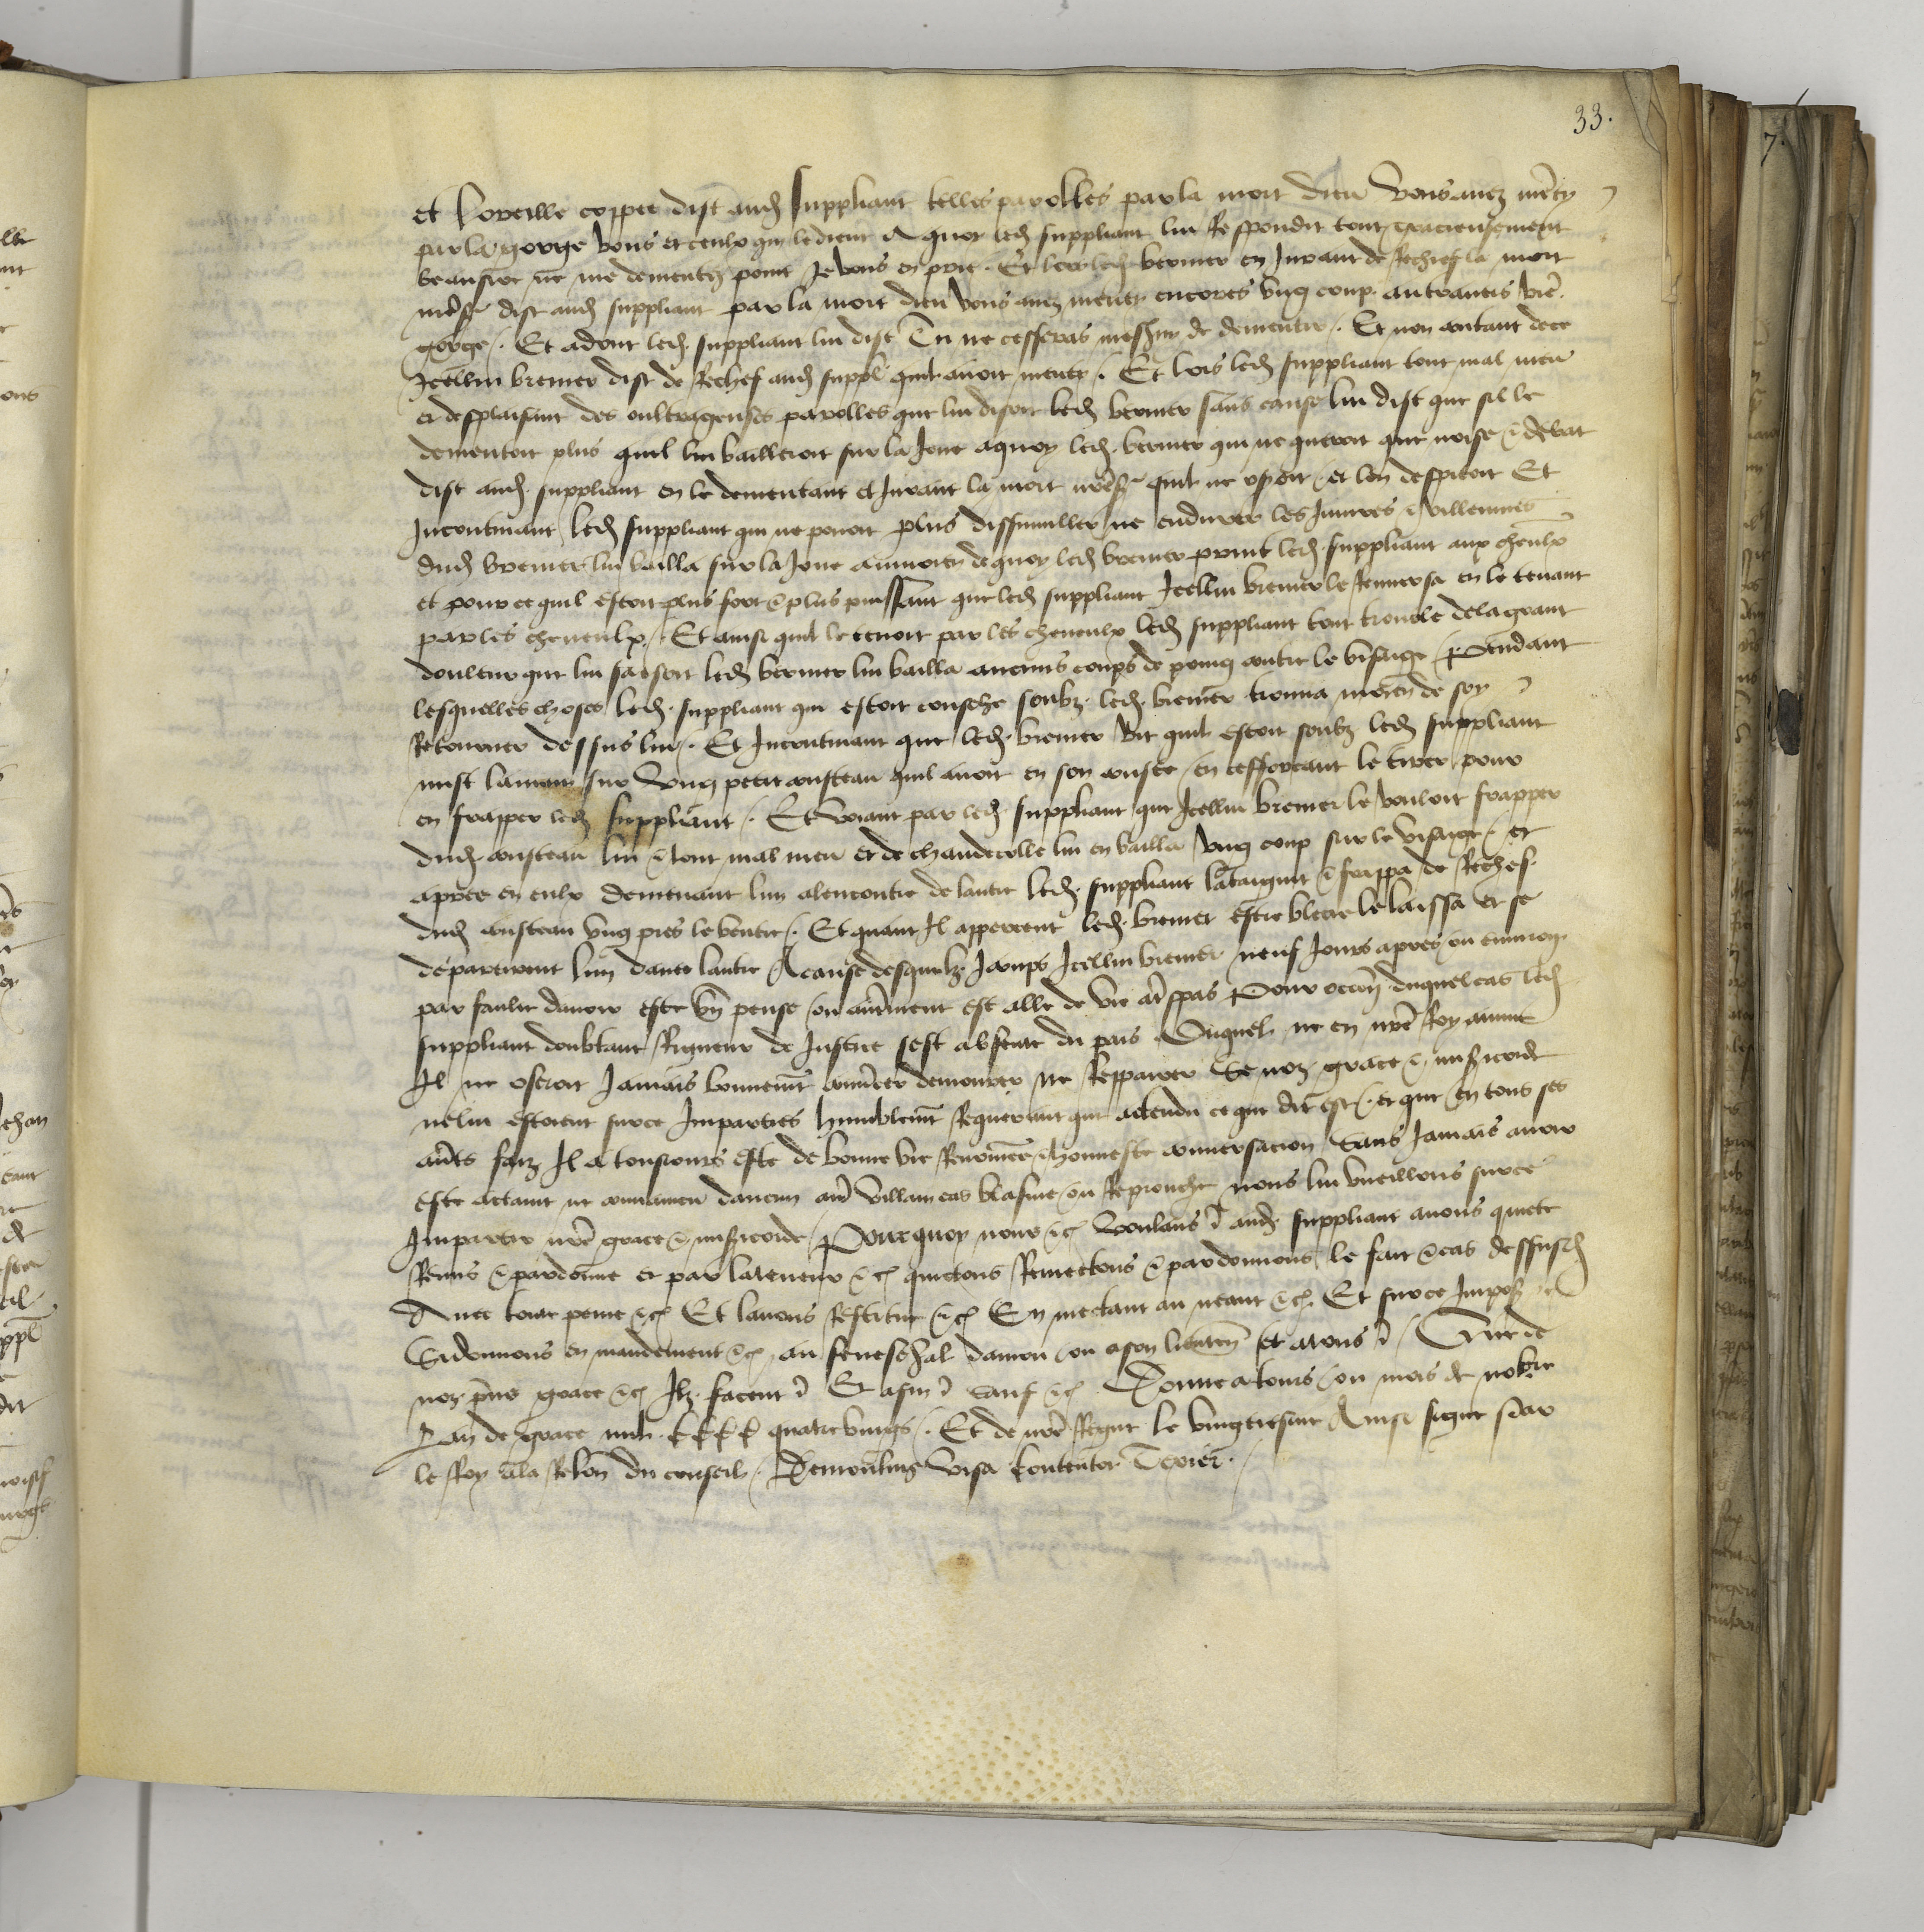 33.
et loreille coppee dist aud suppliant telles parolles par la mort dieu vous avez menty
par la gorge vous et ceulx qui le dient A quoy led suppliant lui Respondit tout gracieusement
beausire ne me dementez point Je vous en prie . Et lors led bremer en Jurant de Rechief la mort
nre s dist aud suppliant par la mort dieu vous avez menty encores ung coup autravers vre
gorge . Et adonc led suppliant lui dist Tu ne cesseras meshuy de dementir . Et non contant de ce
Icellui bremer dist de Rechef aud suppl quil avoit menty . Et lors led suppliant tout mal meu
et desplaisant des oultrageuses parolles que lui disoit led bremer sans cause lui dist que sil le
dementoit plus quil lui bailleroit sur la Joue aquoy led bremer qui ne queroit que noise & debat
dist aud suppliant en le dementant et Jurant la mort nre s quil ne oseroit et len despitoit Et
Incontinant led suppliant qui ne povoit plus dissimuller ne endurer les Iniures & villennies
dud bremer lui bailla sur la Joue au moien de quoy led bremer print led suppliant aux cheveulx
et pour ce quil estoit plus fort & plus puissant que led suppliant Icellui bremer le Renversa en le tenant
par les cheveulx . Et ainsi quil le tenoit par les cheveulx led suppliant tout trouble de la grant
douleur que lui faisoit led bremer lui bailla aucuns coups de poing contre le visaige Pendant
lesquelles choses led suppliant qui estoit couche soubz led bremer trouva moien de soy
Retourner dessus lui . Et Incontinant que led bremer vit quil estoit soubz led suppliant
mist la main sur ung petit cousteau quil avoit en son couste en sefforcant le tirer pour
en frapper led suppliant . Et voiant par led suppliant que Icellui bremer le vouloit frapper
dud cousteau lui tout mal meu et de chaudecolle lui en bailla ung coup sur le visaige . et
apres en eulx demenant lun alencontre de lautre led suppliant lataignit & frappa de Rechef
dud cousteau ung pres le ventre . Et quant Il apperceut led bremer estre blecie le laissa et se
departirent lun davec lautre A cause desquelz coups Icellui bremer neuf Jours apres ou environ
par faulte davoir este bn pense ou autrement est alle de vie a trespas Pour occon duquel cas led
suppliant doubtant Rigueur de Justice sest absente du pais Ouquel ne en nre Royaume
Il ne oseroit Jamais bonnement converser demourer ne Repparer se noz grace & misericorde
ne lui estoient sur ce Imparties humblement Requerant que actendu ce que dit est . et que en tous ses
autres faiz Il a tousiours este de bonne vie Renommee & honneste conversacion sans Jamais avoir
este actaint ne convaincu daucun autre villain cas blasme ou Reprouche nous lui vueillons sur ce
Impartir nre grace & misericorde Pourquoy nous &c voulans aud suppliant avons quicte
Remis & pardonne et par la teneur &c quictons Remectons & pardonnons le fait & cas dessusd
Avec toute peine &c Et lavons Restitue &c En mectant au neant &c Et sur ce Imposons
Si donnons en mandement &c au seneschal danjou ou a son lieuten et a tous Que de
noz pns grace &c Ilz facent Et afin sauf &c Donne a tours ou mois de novbre
Lan de grace mil cccc quatre vings . Et de nre Regne le vingtiesme Ainsi signe par
le Roy a la Relon du conseil . Demoulins Visa Contentor Texier .